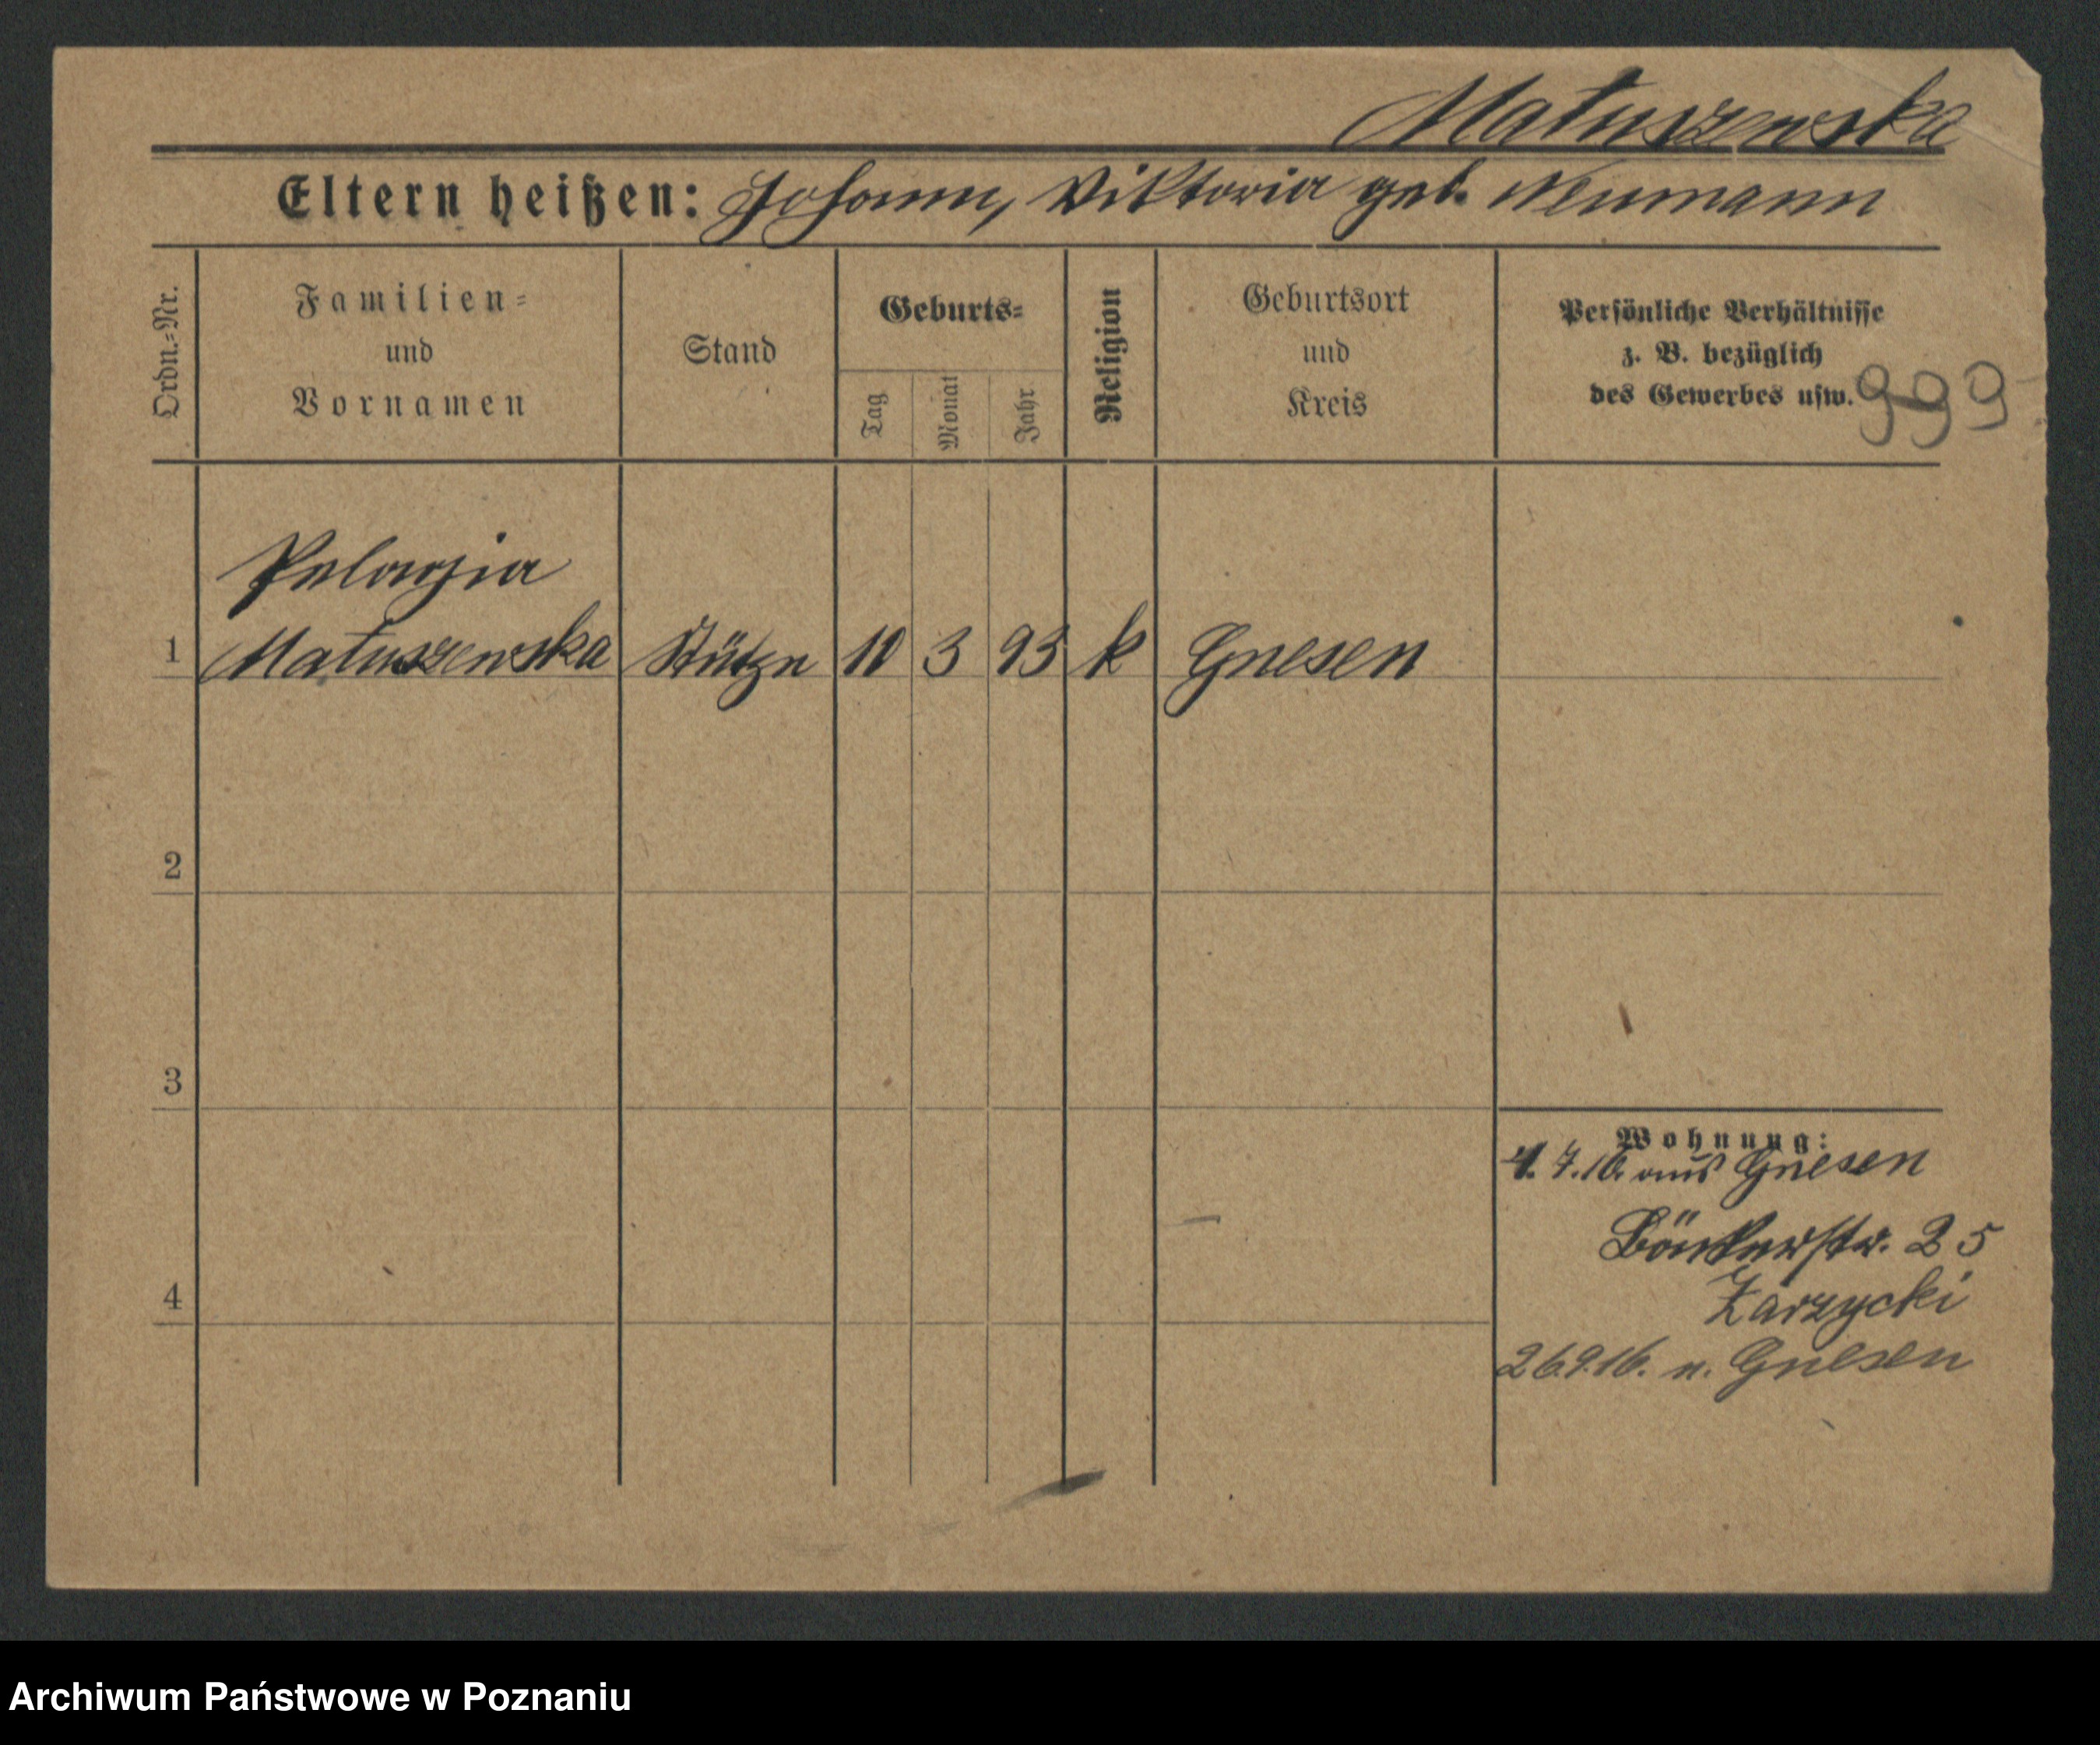 Matuszewska
Eltern heißen: Johann, Viktoria geb. Neumann
Ordn.=Nr.
Familien=
und
Vornamen
Stand
Geburts=
Tag
Monat
Jahr
Religion
Geburtsort
und
Kreis
Persönliche Verhältnisse
z. B. bezüglich
des Gewerbes usw.
999
Pelagia
1 Matuszewska Stütze 10 3 93 k Gnesen
2
3
Wohnung:
4. 7. 16. aus Gnesen
Bäckerstr. 25
4
Zarzycki
26.9.16. n. Gnesen
Archiwum Państwowe w Poznaniu